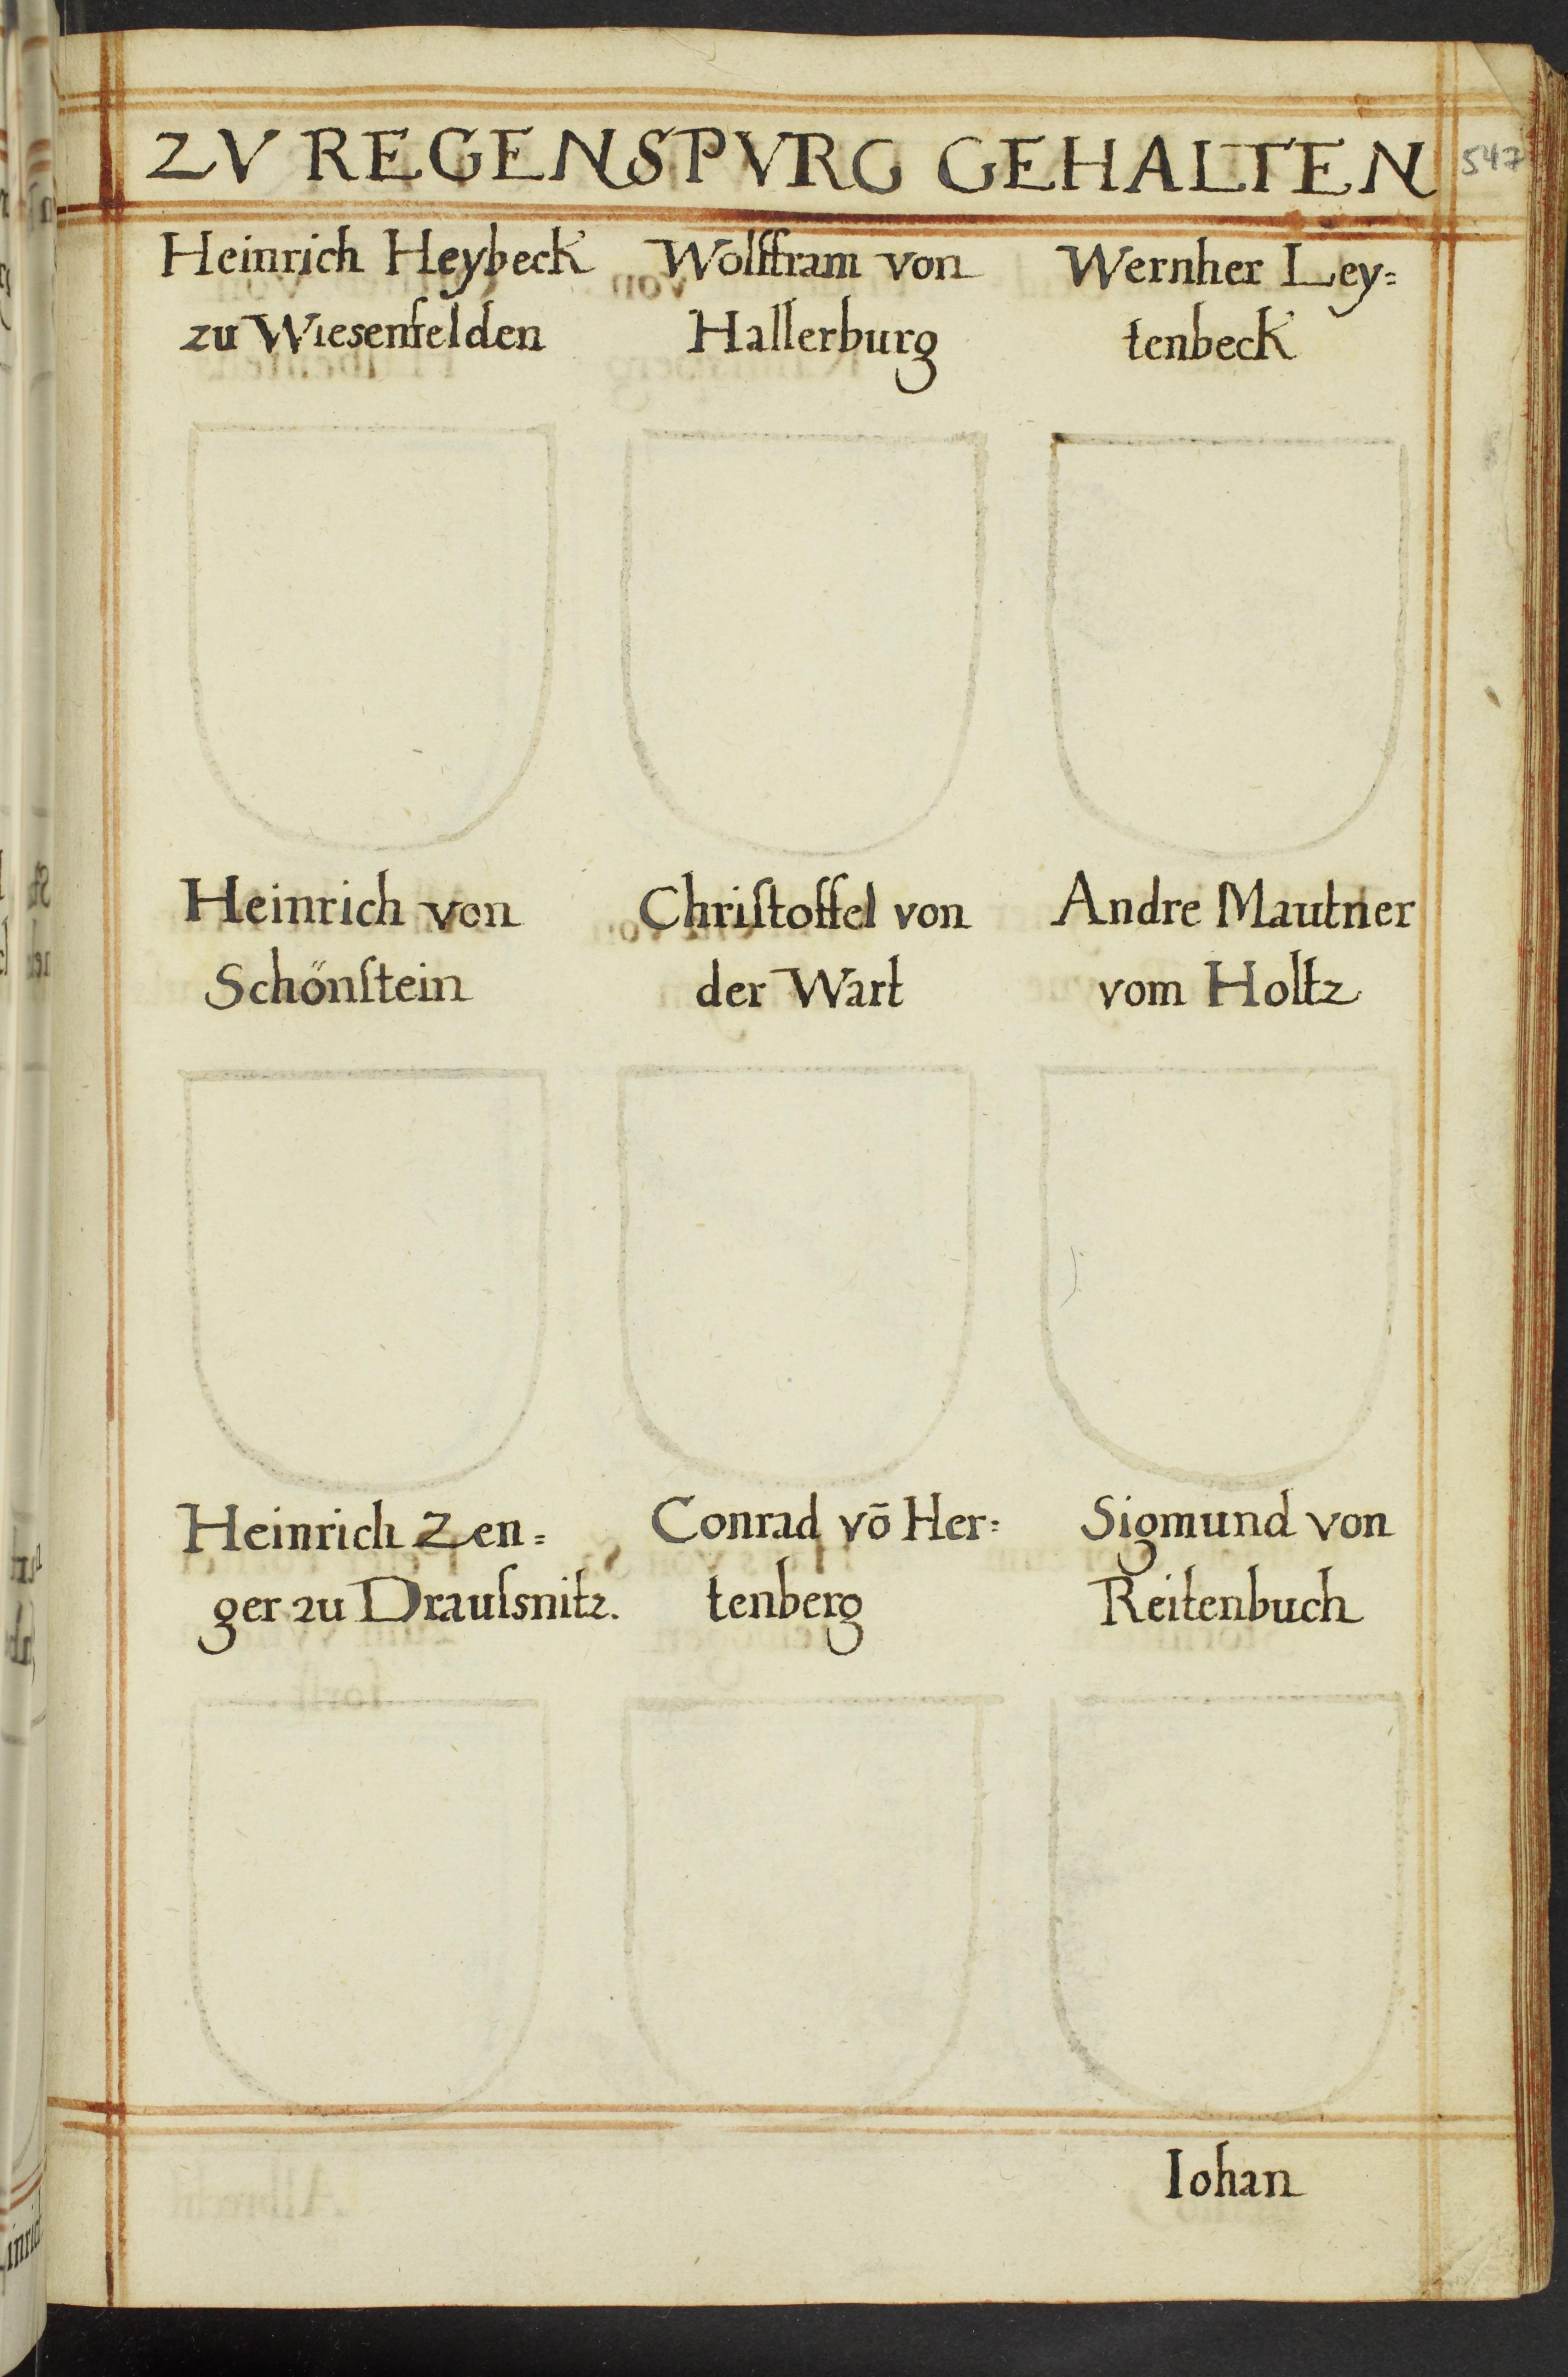 ZV REGENSPVRG GEHALTEN
547
Heinrich Heybeck
zu Wiesenfelden
Wolffram von
Hallerburg
Wernher Ley=
tenbeck
Heinrich von
Schönſtein
Chriſtoffel von
der Wart
Andre Mautner
vom Holtz
Heinrich Zen=
ger zu Drauſsnitz.
Conrad võ Her=
tenberg
Sigmund von
Reitenbuch
Iohan